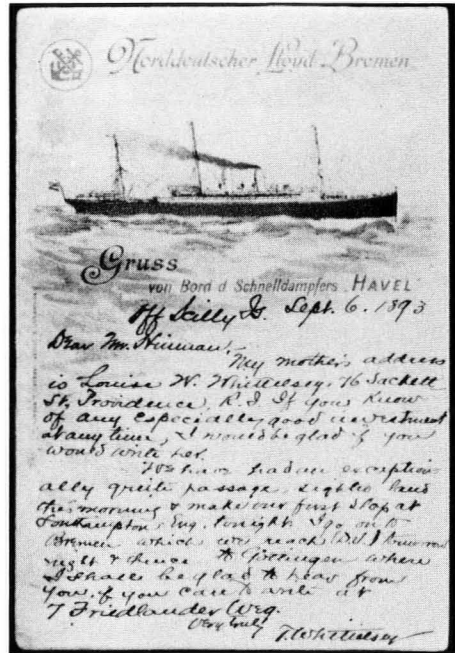 Norddeutscher Lloyd Bremen
Gruss
von Bord d Schnelldampfers HAVEL
Off Scilly Is. Sept. 6. 1893
Dear Mr. Hinman:
My mother's address
is Louise W. Whittelsey, 76 Sackett
St. Providence, R.I. If you know
of any especially good investment
at any time, I would be glad if you
would write her.
We have had an exception
ally quiet passage, sighted land
this morning & make our first stop at
Southampton, Eng. tonight. I go on to
Bremen which we reach tomorrow
night & thence to Göttingen where
I shall be glad to hear from
you if you care to write at
7 Friedlander Weg.
Very truly
T. Whittelsey